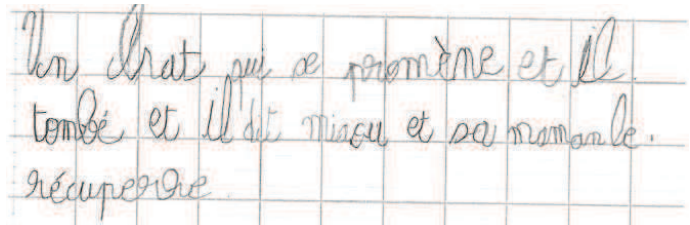 Un chat qui se promène et il
tombé et il dit miaou et sa maman le.
récuperre.